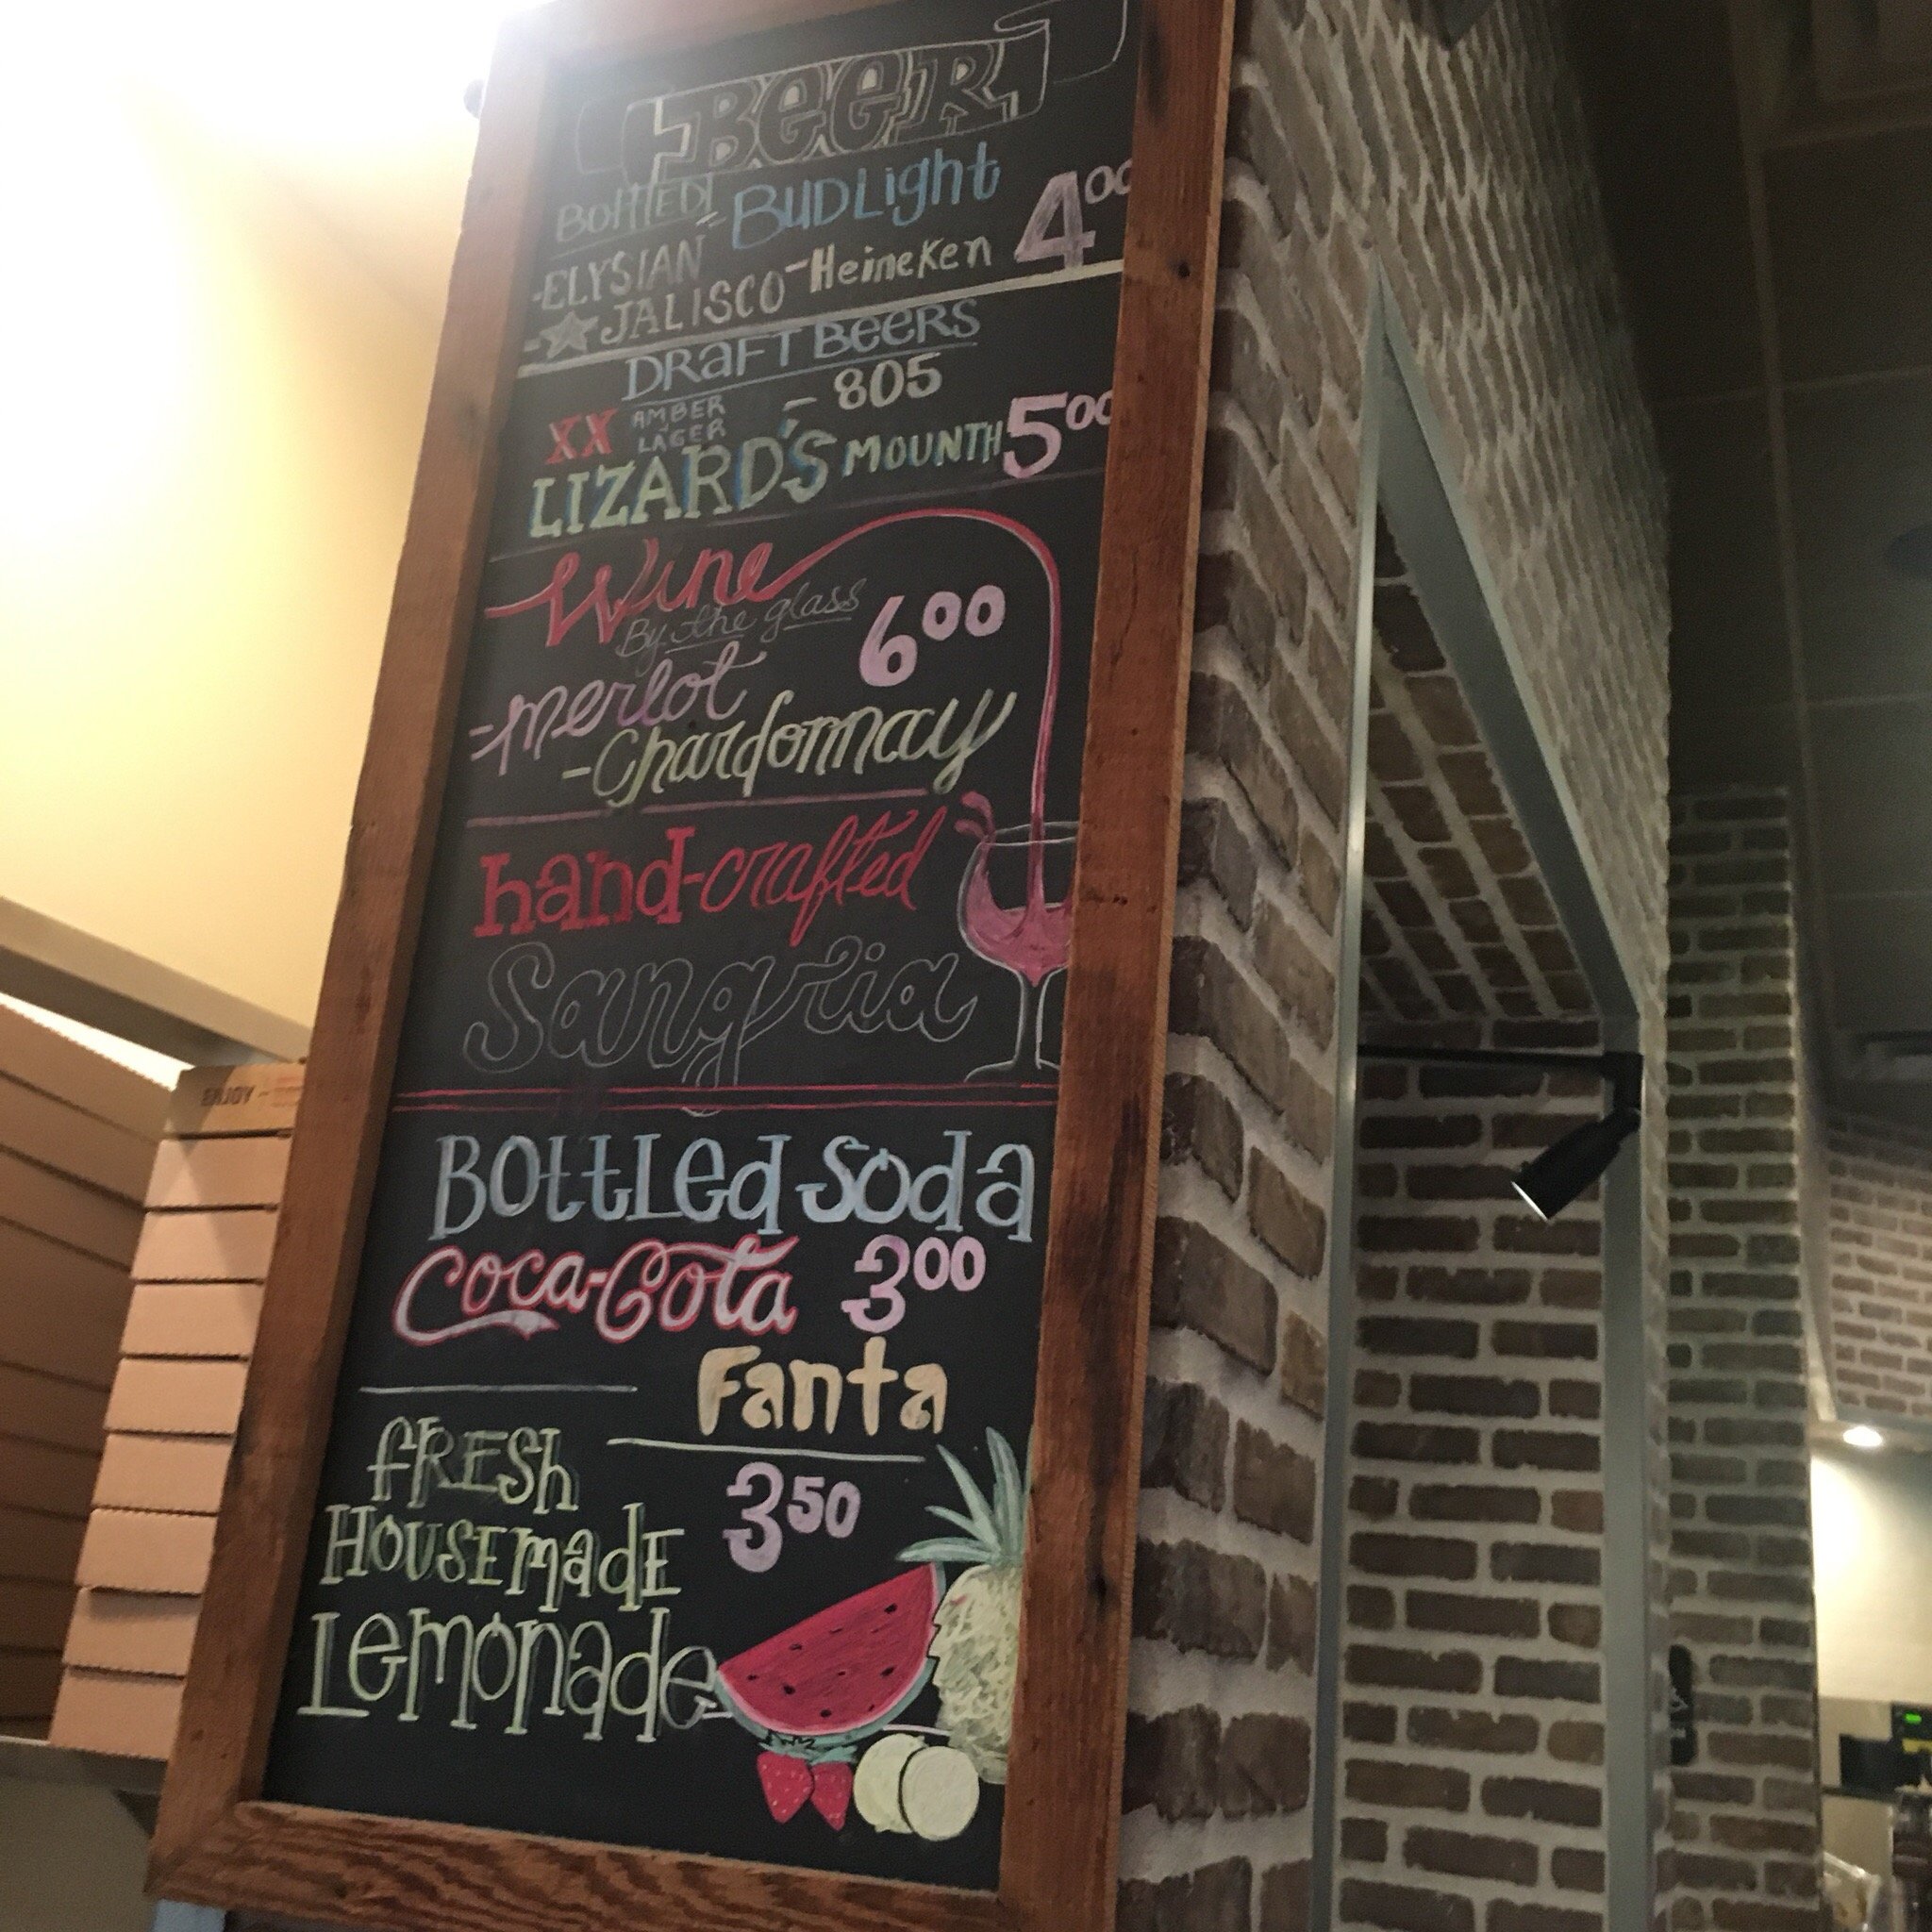 BEER
BOTTLED BUDLight 4⁰⁰
-ELYSIAN -Heineken
-☆JALISCO
DRAFT BEERS
XX AMBER LAGER - 805
LIZARD'S MOUNTH 5⁰⁰
Wine
By the glass 6⁰⁰
-merlot
-Chardonnay
hand-crafted
Sangria
Bottled Soda
Coca-Cola 3⁰⁰
Fanta
fresh 3⁵⁰
Housemade
Lemonade
ENJOY